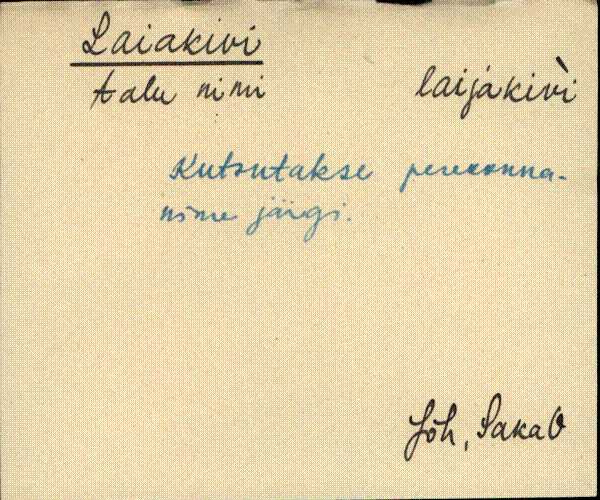 Laiakivi
talu nimi laijakivì
Kutsutakse perekonna-
nime järgi.
Jõh, Saka